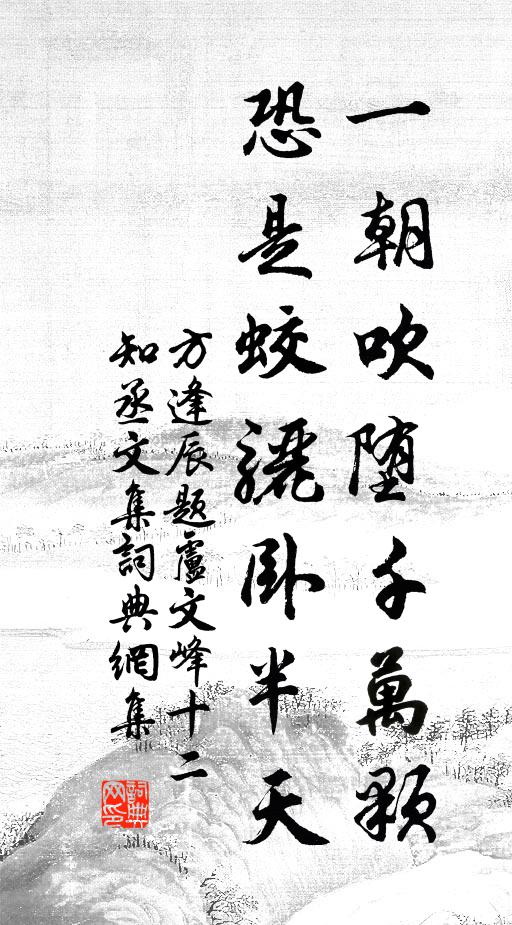 一朝吹堕千萬顆
恐是蛟驪卧半天
方逢辰題盧文峰十二
知丞文集詞典網集
詞典网印